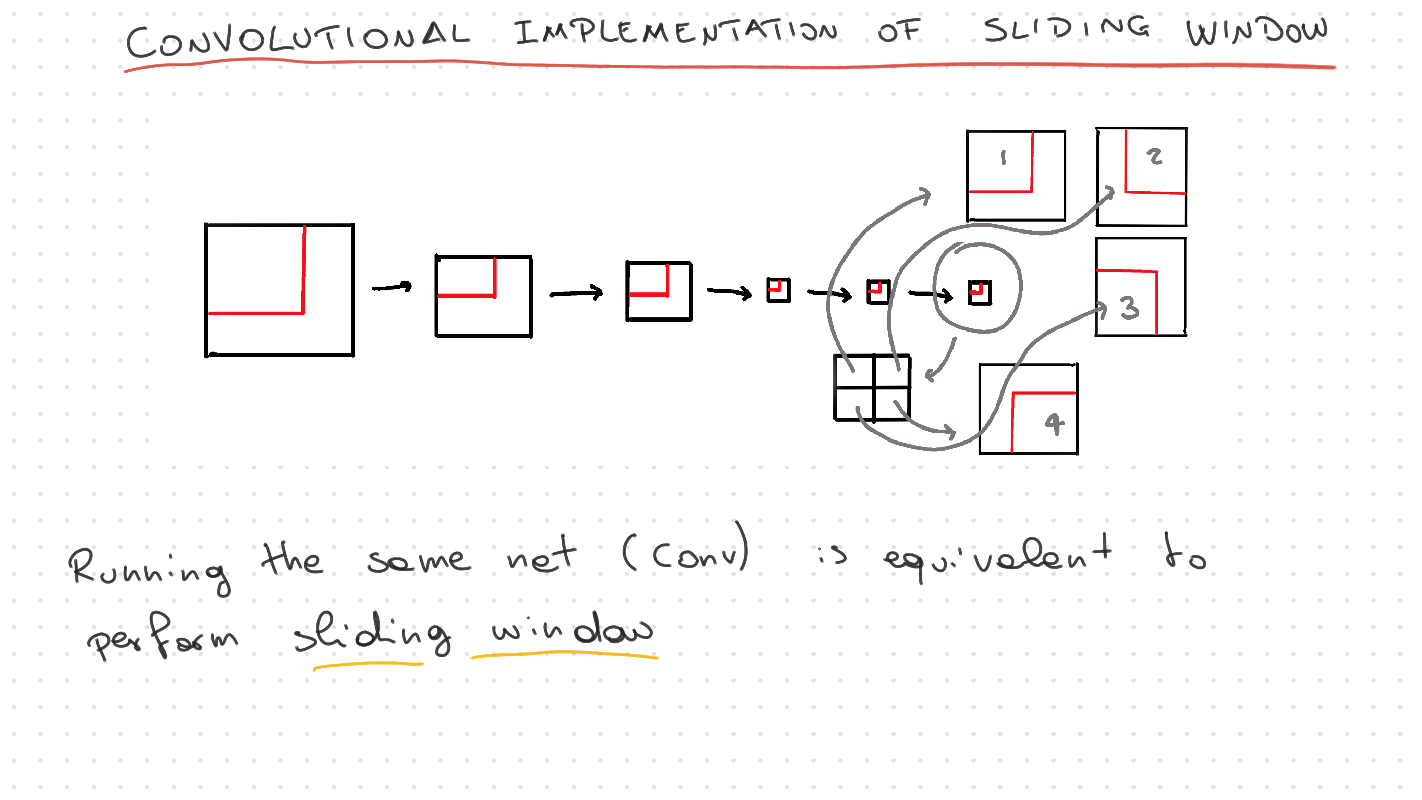 CONVOLUTIONAL IMPLEMENTATION OF SLIDING WINDOW
1
2
3
4
Running the same net (Conv) is equivalent to
perform sliding window